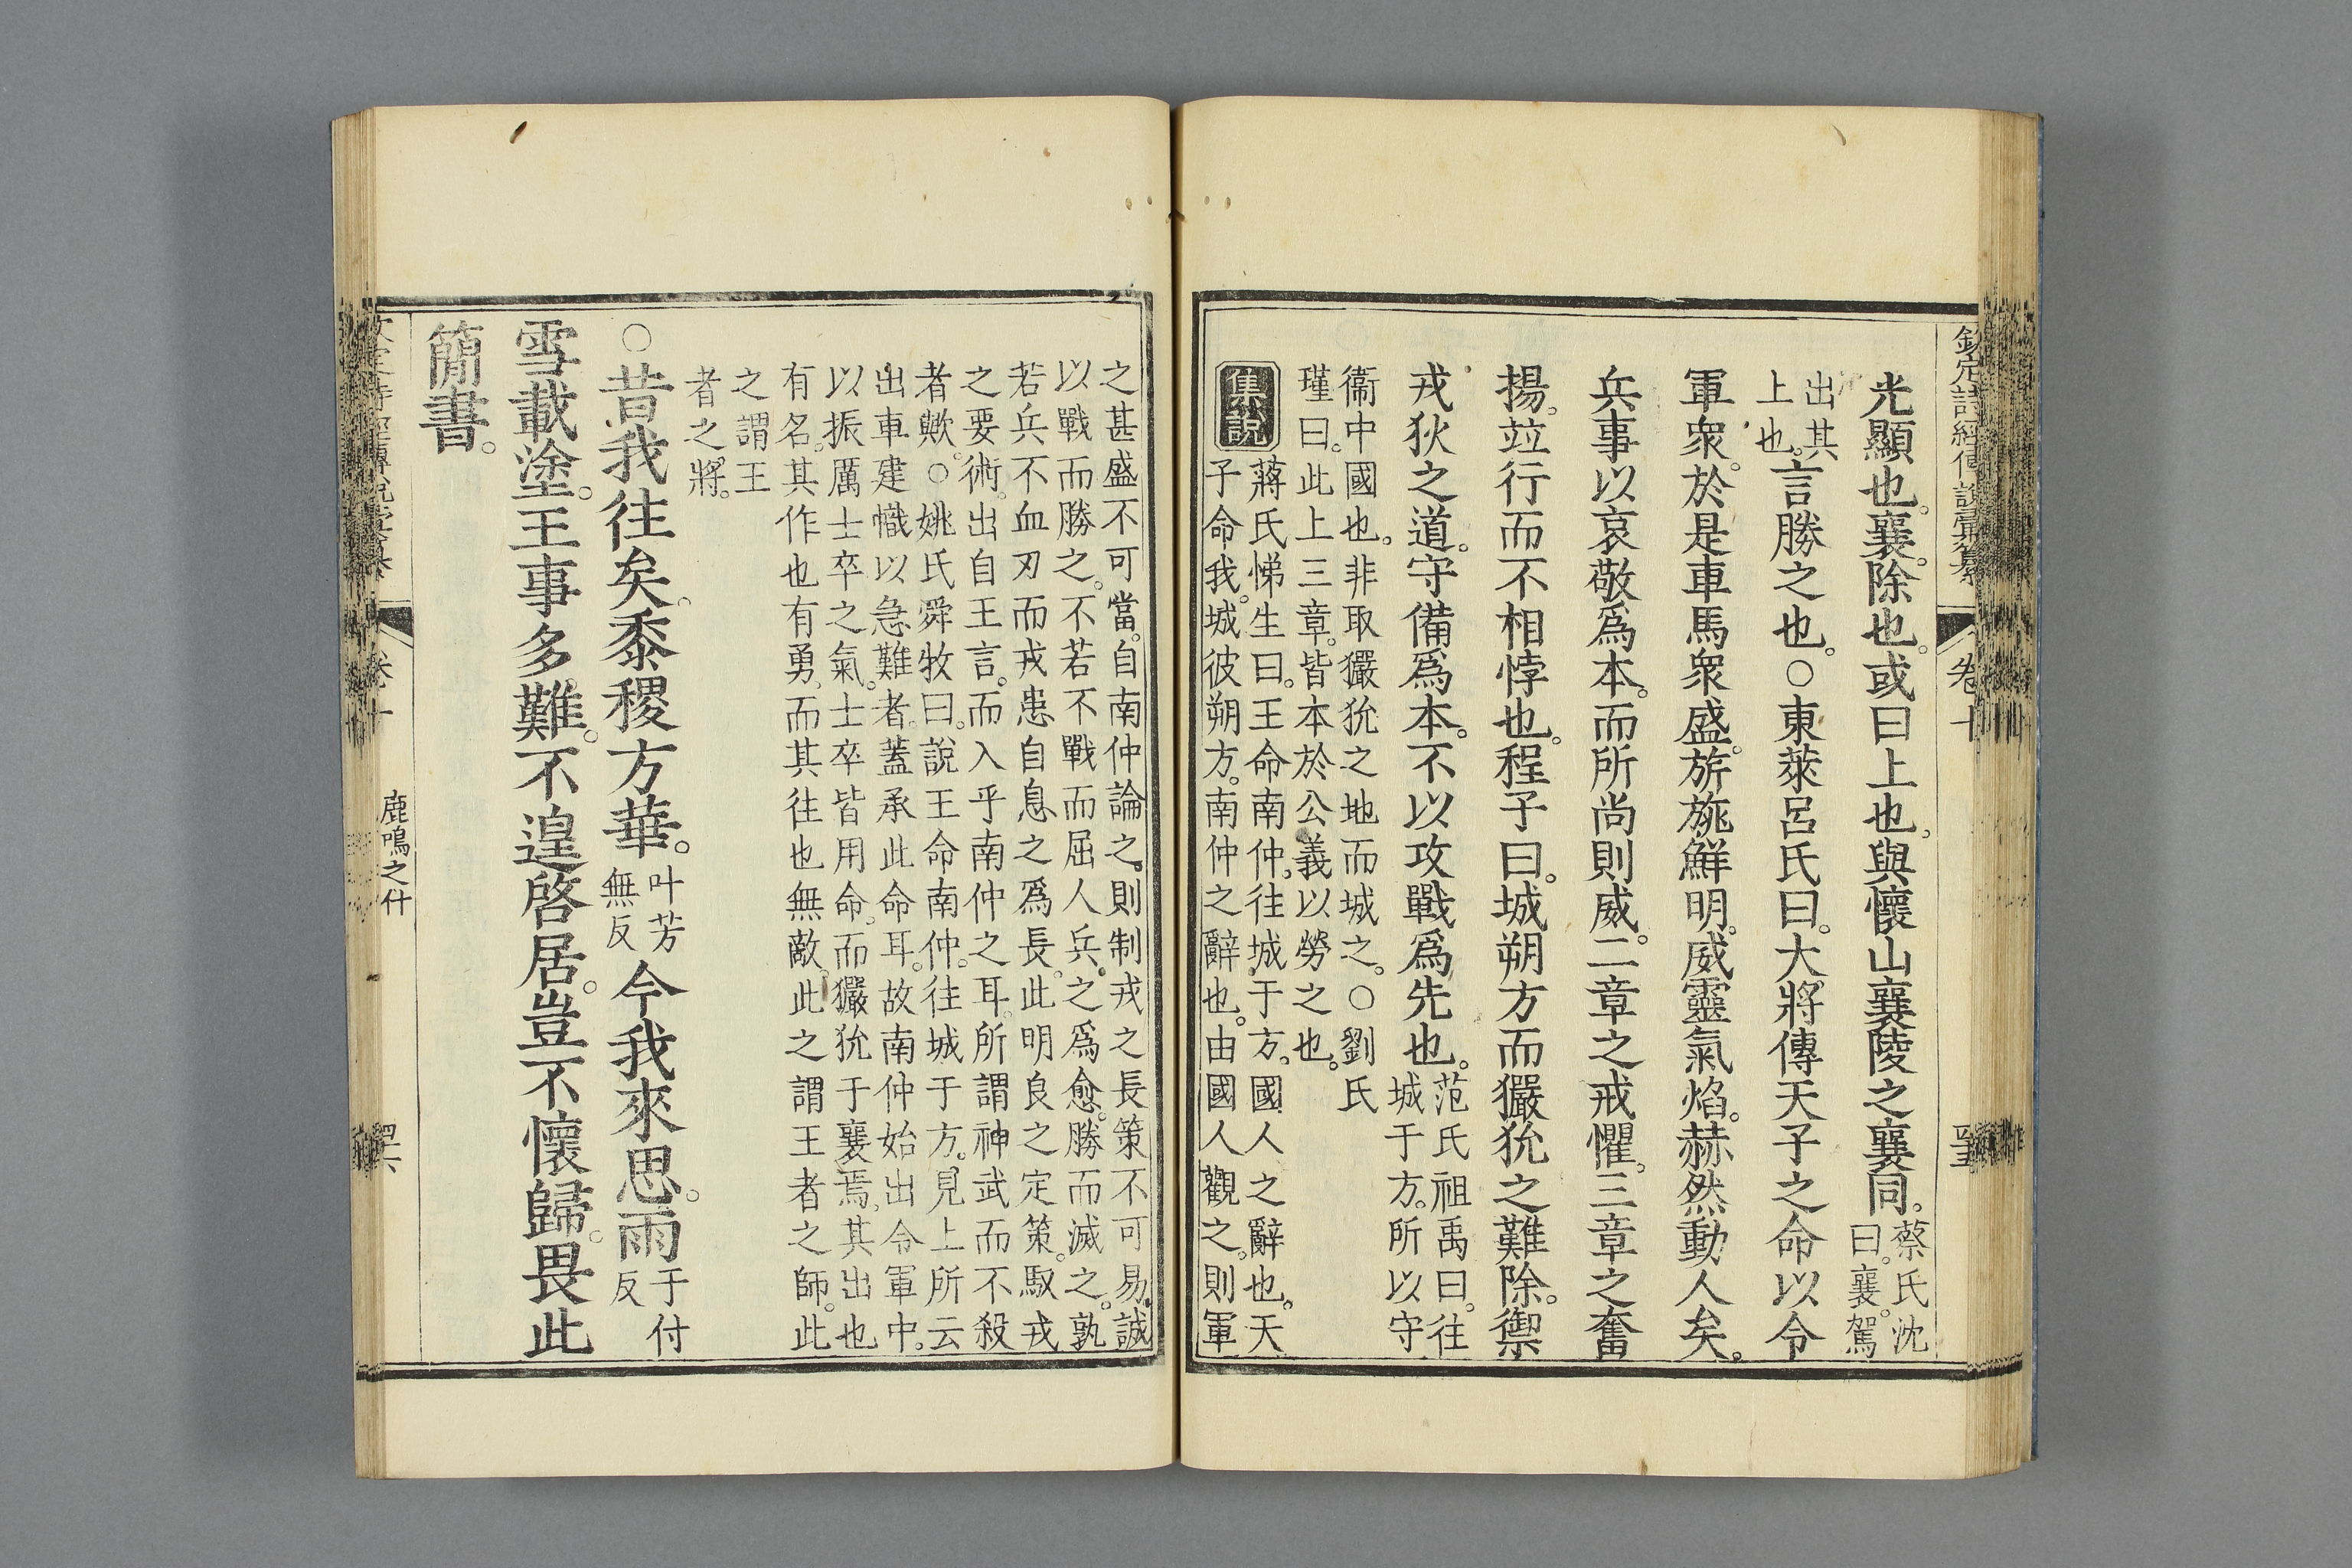 欽定詩經傳說彙纂 卷十
光顯也。襄。除也。或曰上也。與懷山襄陵之襄同。蔡氏沈曰。襄。駕
出其上也。言勝之也。○東萊呂氏曰。大將傳天子之命以令
軍衆。於是車馬衆盛。旂旐鮮明。威靈氣焰。赫然動人矣。
兵事以哀敬爲本。而所尚則威。二章之戒懼。三章之奮
揚。竝行而不相悖也。程子曰。城朔方而玁狁之難除。禦
戎狄之道。守備爲本。不以攻戰爲先也。范氏祖禹曰。往城于方。所以守
衞中國也。非取玁狁之地而城之。○劉氏
瑾曰。此上三章。皆本於公義以勞之也。
集說
蔣氏悌生曰。王命南仲。往城于方。國人之辭也。天
子命我。城彼朔方。南仲之辭也。由國人觀之。則軍
之甚盛不可當。自南仲論之。則制戎之長策不可易。誠
以戰而勝之。不若不戰而屈人兵。之爲愈。勝而滅之。孰
若兵不血刃而戎患自息之爲長。此明良之定策。馭戎
之要術。出自王言。而入乎南仲之耳。所謂神武而不殺
者歟。○姚氏舜牧曰。說王命南仲。往城于方。見上所云
出車建幟以急難者。蓋承此命耳。故南仲始出令軍中。
以振厲士卒之氣。士卒皆用命。而玁狁于襄焉。其出也
有名。其作也有勇。而其往也無敵。此之謂王者之師。此
之謂王
者之將。
○昔我往矣。黍稷方華。叶芳無反今我來思。雨于付反
雪載塗。王事多難。不遑啓居。豈不懷歸。畏此
簡書。
鹿鳴之什